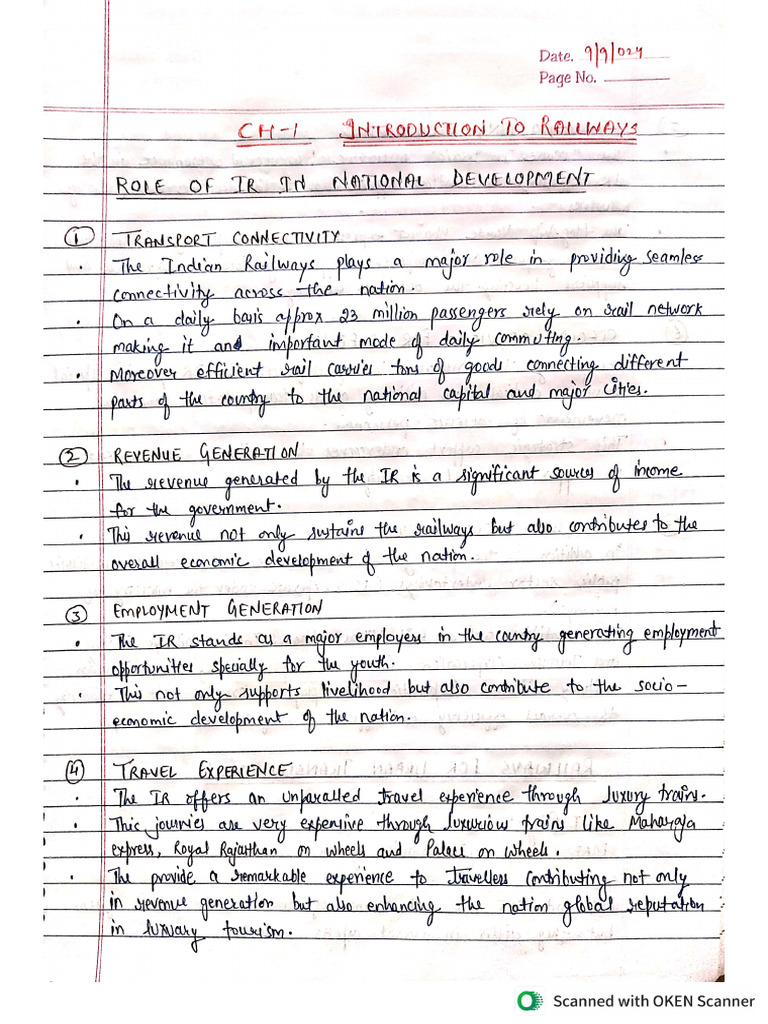 Date. 9/9/024
Page No.
CH-1 INTRODUCTION TO RAILWAYS
ROLE OF IR IN NATIONAL DEVELOPMENT
① TRANSPORT CONNECTIVITY
• The Indian Railways plays a major role in providing seamless
connectivity across the nation.
• On a daily basis approx 23 million passengers rely on rail network
making it and important mode of daily commuting.
• Moreover efficient rail carries tons of goods connecting different
parts of the country to the national capital and major cities.
② REVENUE GENERATION
• The revenue generated by the IR is a significant sources of income
for the government.
• This revenue not only sustains the railways but also contributes to the
overall economic development of the nation.
③ EMPLOYMENT GENERATION
• The IR stands as a major employers in the country generating employment
opportunities specially for the youth.
• This not only supports livelihood but also contribute to the socio-
economic development of the nation.
④ TRAVEL EXPERIENCE
• The IR offers an unparalled travel experience through luxury trains.
• This journies are very expensive through luxurious trains like Maharaja
express, Royal Rajasthan on wheels and Palace on wheels.
• The provide a remarkable experience to travellers contributing not only
in revenue generation but also enhancing the nation global reputation
in luxuary tourism.
Scanned with OKEN Scanner